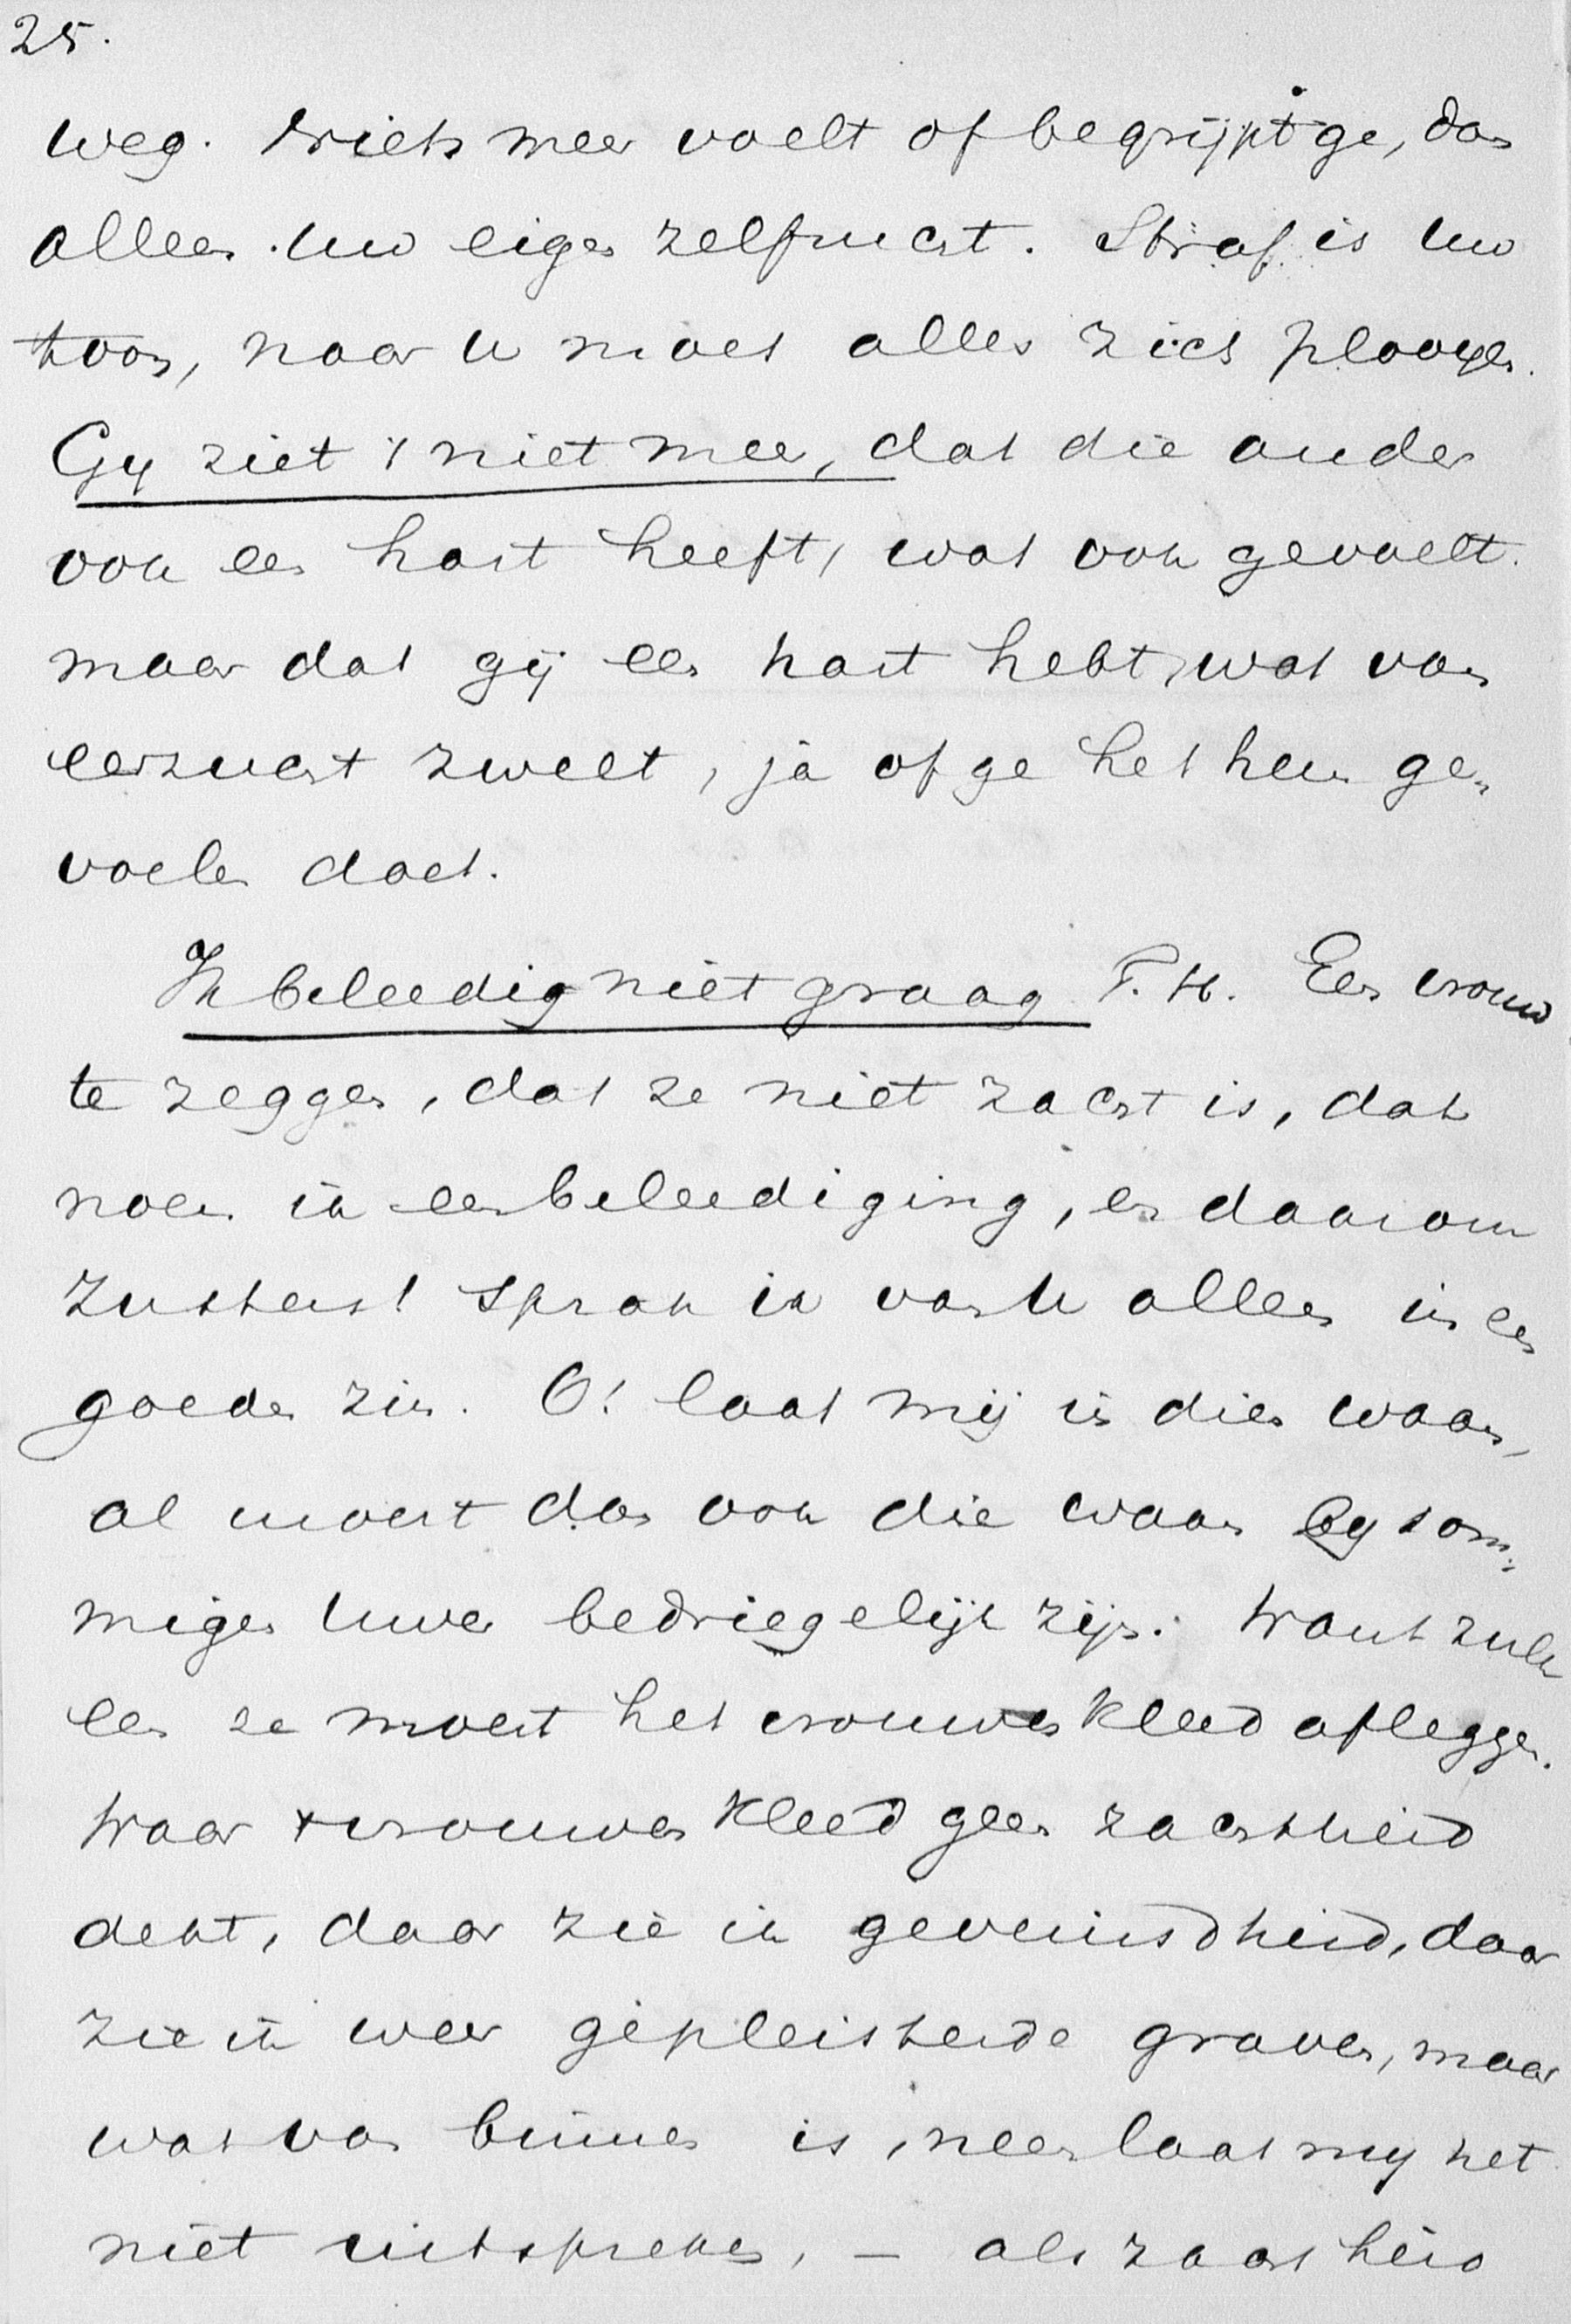 25.
weg. Niets meer voelt of begrijpt ge, dan
alleen uw eigen zelfzucht. Straf is uw
toon, naar u moet alles zich plooyen.
Gy ziet 't niet meer, dat die ander
ook een hart heeft, wat ook gevoelt.
maar dat gij een hart hebt, wat van
eerzucht zwelt, ja of ge het hem ge„
voelen doet.
Ik beleedig niet graag T. H. Een vrouw
te zeggen, dat ze niet zacht is, dat
noem ik een beleediging, en daarom
zusters! sprak ik van U allen in een
goeden zin. O! laat mij in dien waan,
al moest dan ook die waan by som„
migen Uwer bedriegelijk zijn. Want zulk
een ze moest het vrouwenkleed afleggen.
Waar 't vrouwenkleed geen zachtheid
dekt, daar zie ik geveinsdheid, daar
zie ik weer gepleisterde graven, maar
wat van binnen is, neen laat my het
niet uitspreken, — als zachtheid